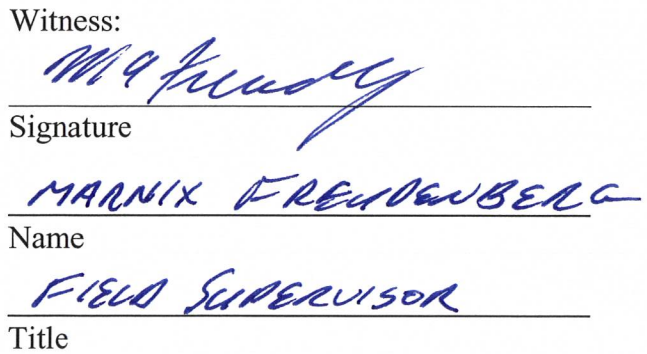 Witness:
Signature
MARNIX FREUDENBERG
Name
FIELD SUPERVISOR
Title